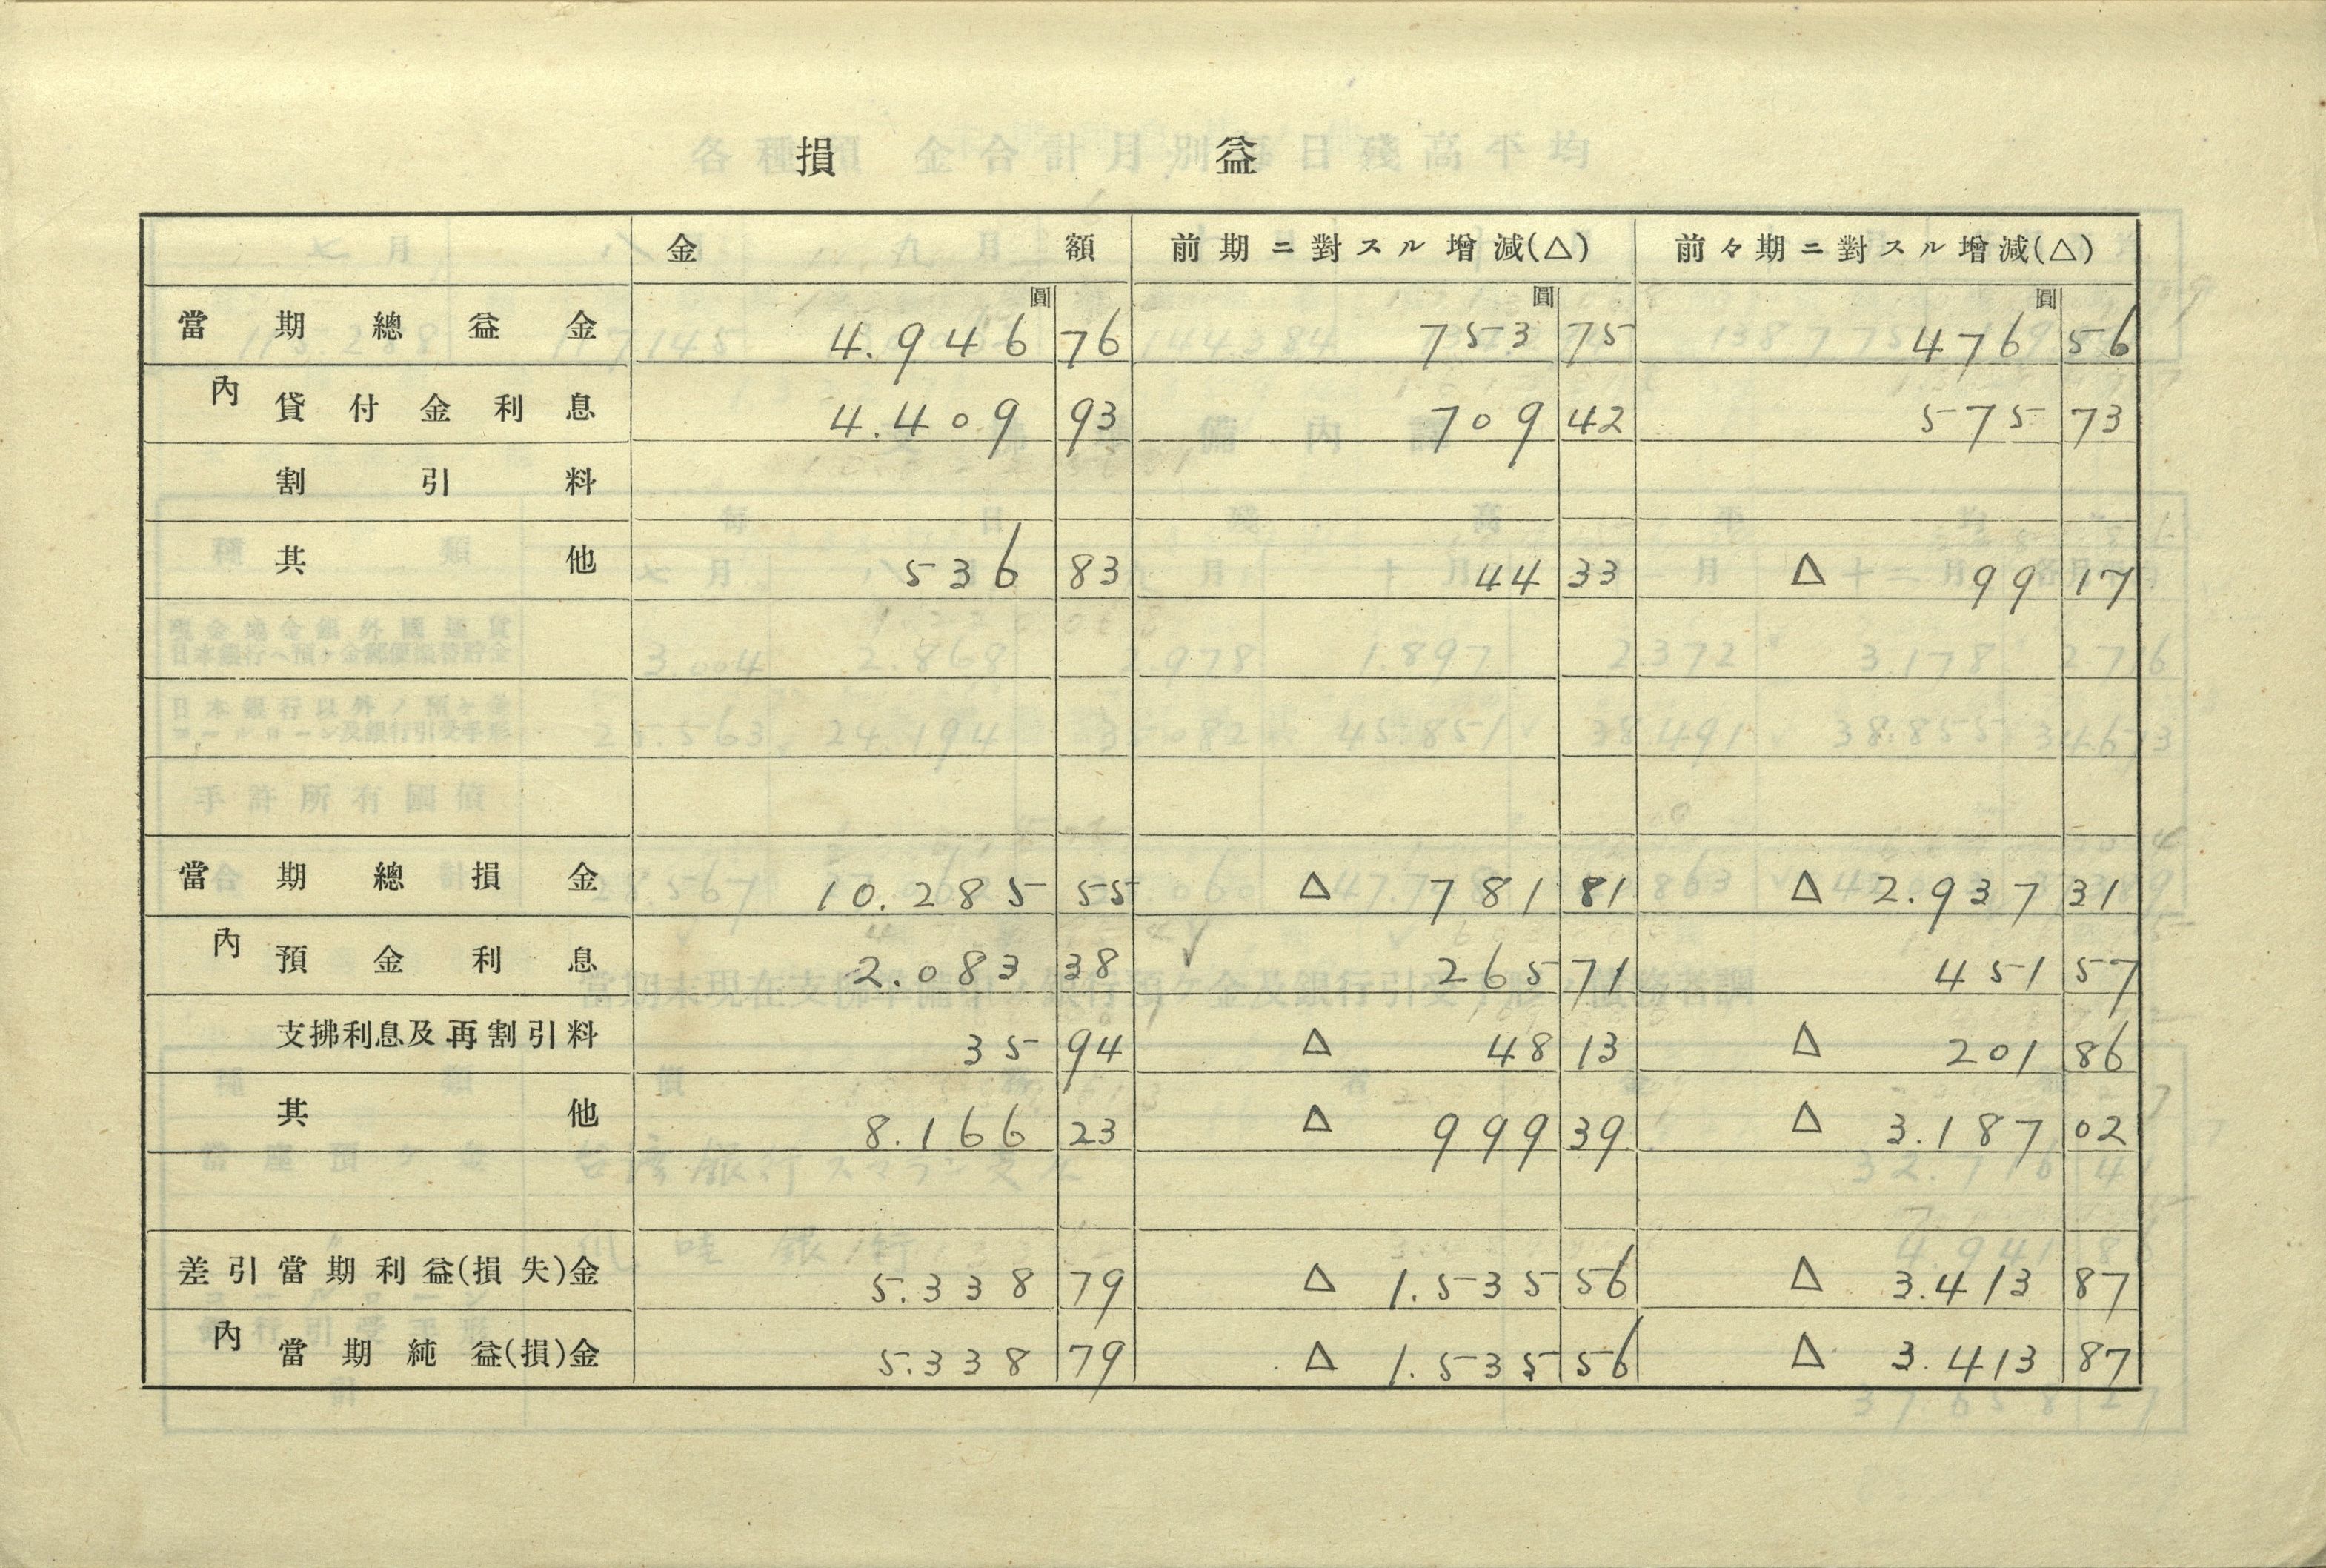 損益
金額 前期ニ對スル增減(△) 前々期ニ對スル增減(△)
圓 圓 圓
當期總益金 4.946 76 753 75 476 56
內 貸付金利息 4.409 93 709 42 575 73
割引料
其他 536 83 44 33 △ 99 17
當期總損金 10.285 55 △ 781 81 △ 2.937 31
內 預金利息 2.083 38 265 71 451 57
支拂利息及再割引料 35 94 △ 48 13 △ 201 86
其他 8.166 23 △ 999 39 △ 3.187 02
差引當期利益(損失)金 5.338 79 △ 1.535 56 △ 3.413 87
內 當期純益(損)金 5.338 79 △ 1.535 56 △ 3.413 87